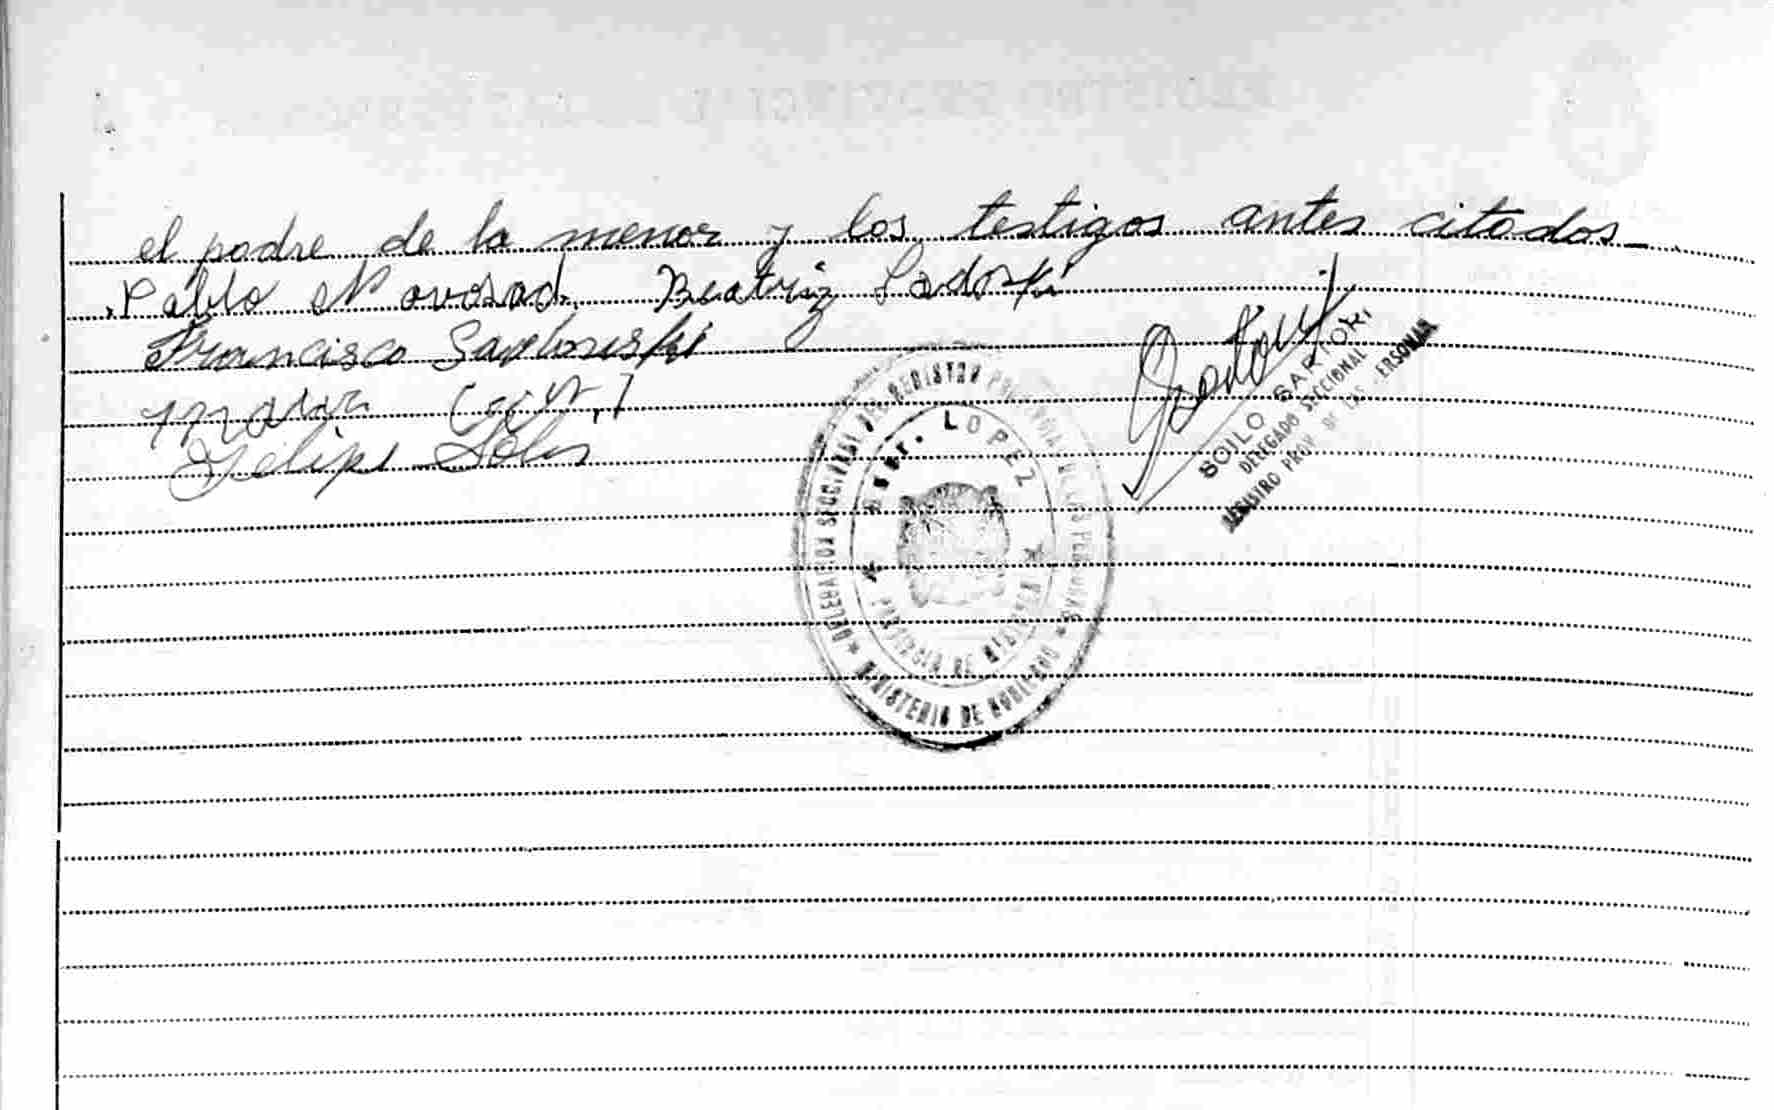 el padre de la menor y los testigos antes citados
Pablo Novosad Beatriz Sadoski
Francisco
Maria
Felipe Solis
SOILO SARTORI
DELEGADO SECCIONAL
REGISTRO PROV DE LAS PERSONAS
DELEGACION SECCIONAL DEL REGISTRO PROVINCIAL DE LAS PERSONAS
LOPEZ
PROVINCIA DE
MINISTERIO DE GOBIERNO